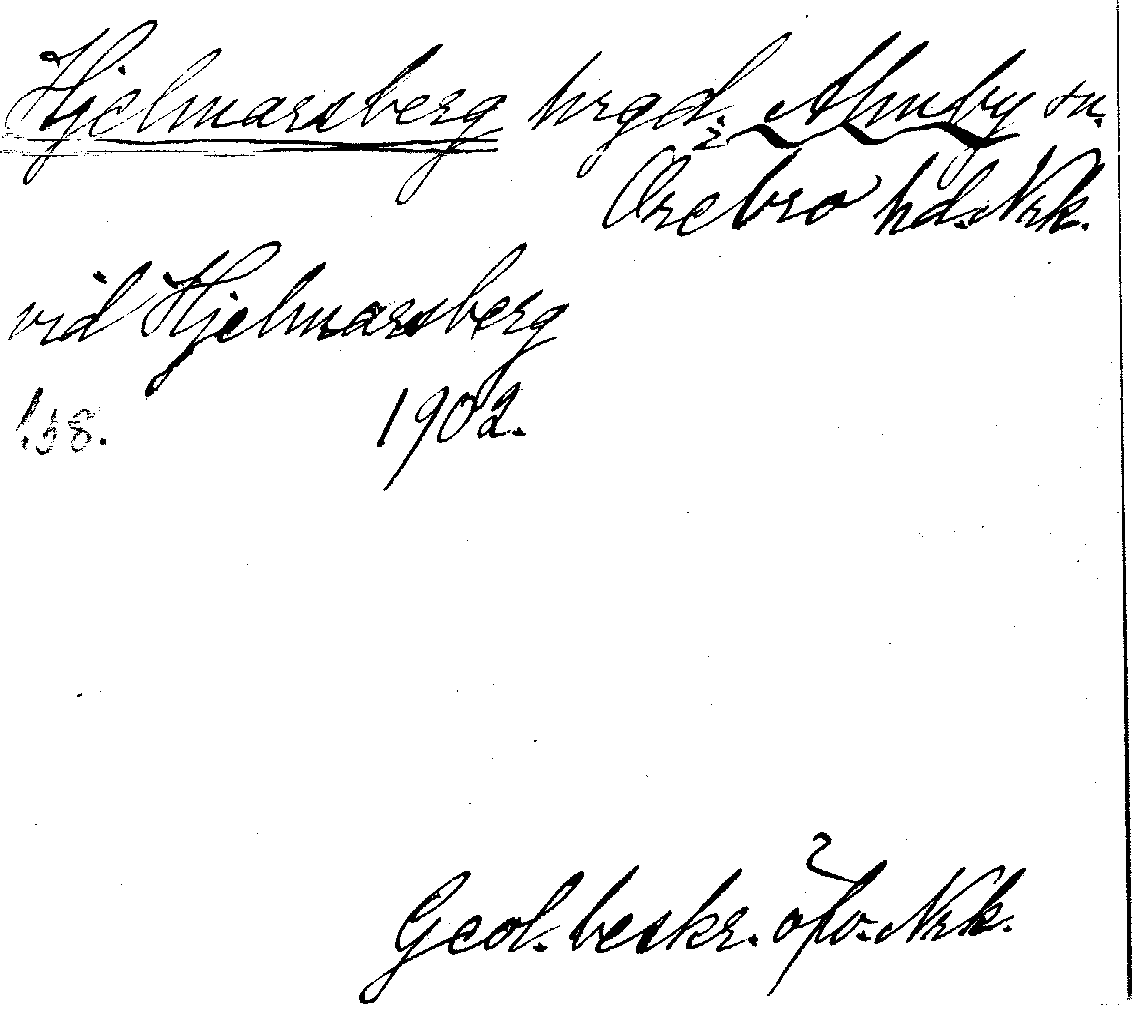 Hjelmarsberg hrgd, Almby sn.
Örebro hd. Nrk.
vid Hjelmarsberg
s. 58. 1902.
Geol. beskr. öfv. Nrk.